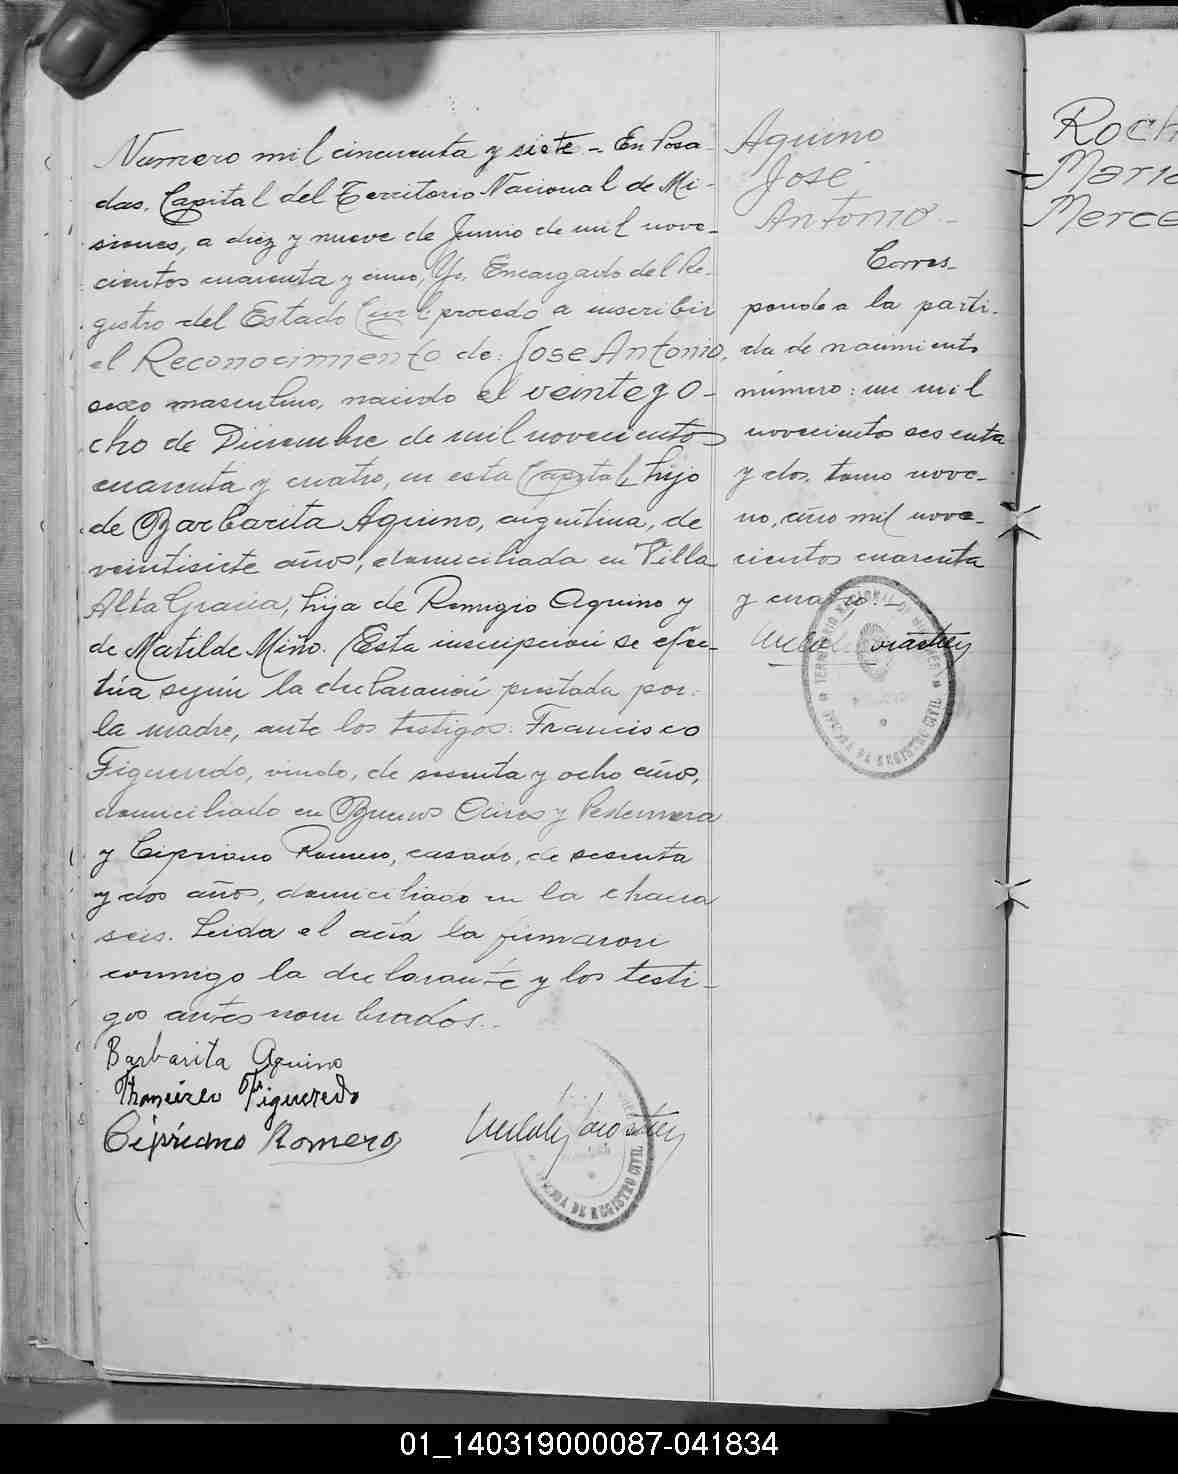 Numero mil cincuenta y siete - En Posa-
das, Capital del Territorio Nacional de Mi-
siones, a diez y nueve de Junio de mil nove-
cientos cuarenta y cinco, Yo, Encargado del Re-
gistro del Estado Civil, procedo a inscribir
el Reconocimiento de: Jose Antonio,
sexo masculino, nacido el veinte y o-
cho de Diciembre de mil novecientos
cuarenta y cuatro, en esta Capital, hijo
de Barbarita Aquino, argentina, de
veintisiete años, domiciliada en Villa
Alta Gracia, hija de Remigio Aquino y
de Matilde Miño. (Esta inscripcion se efec-
túa según la declaración prestada por:
la madre, ante los testigos: Francisco
Figueredo, viudo, de sesenta y ocho años,
domiciliado en Buenos Aires y Pedernera
y Cipriano Romero, casado, de sesenta
y dos años, domiciliado en la chacra
seis. Leida el acta la firmaron
conmigo la declarante y los testi-
gos antes nombrados.-
Barbarita Aquino
Francisco Figueredo
Cipriano Romero
OFICINA DE REGISTRO CIVIL
Aquino
José
Antonio -
Corres-
ponde a la parti-
da de nacimiento
número: un mil
novecientos sesenta
y dos, tomo nove-
no, año mil nove-
cientos cuarenta
y cuatro.-
TERRITORIO NACIONAL DE MISIONES
OFICINA DE REGISTRO CIVIL
Roch
Maria
Merce
01_140319000087-041834